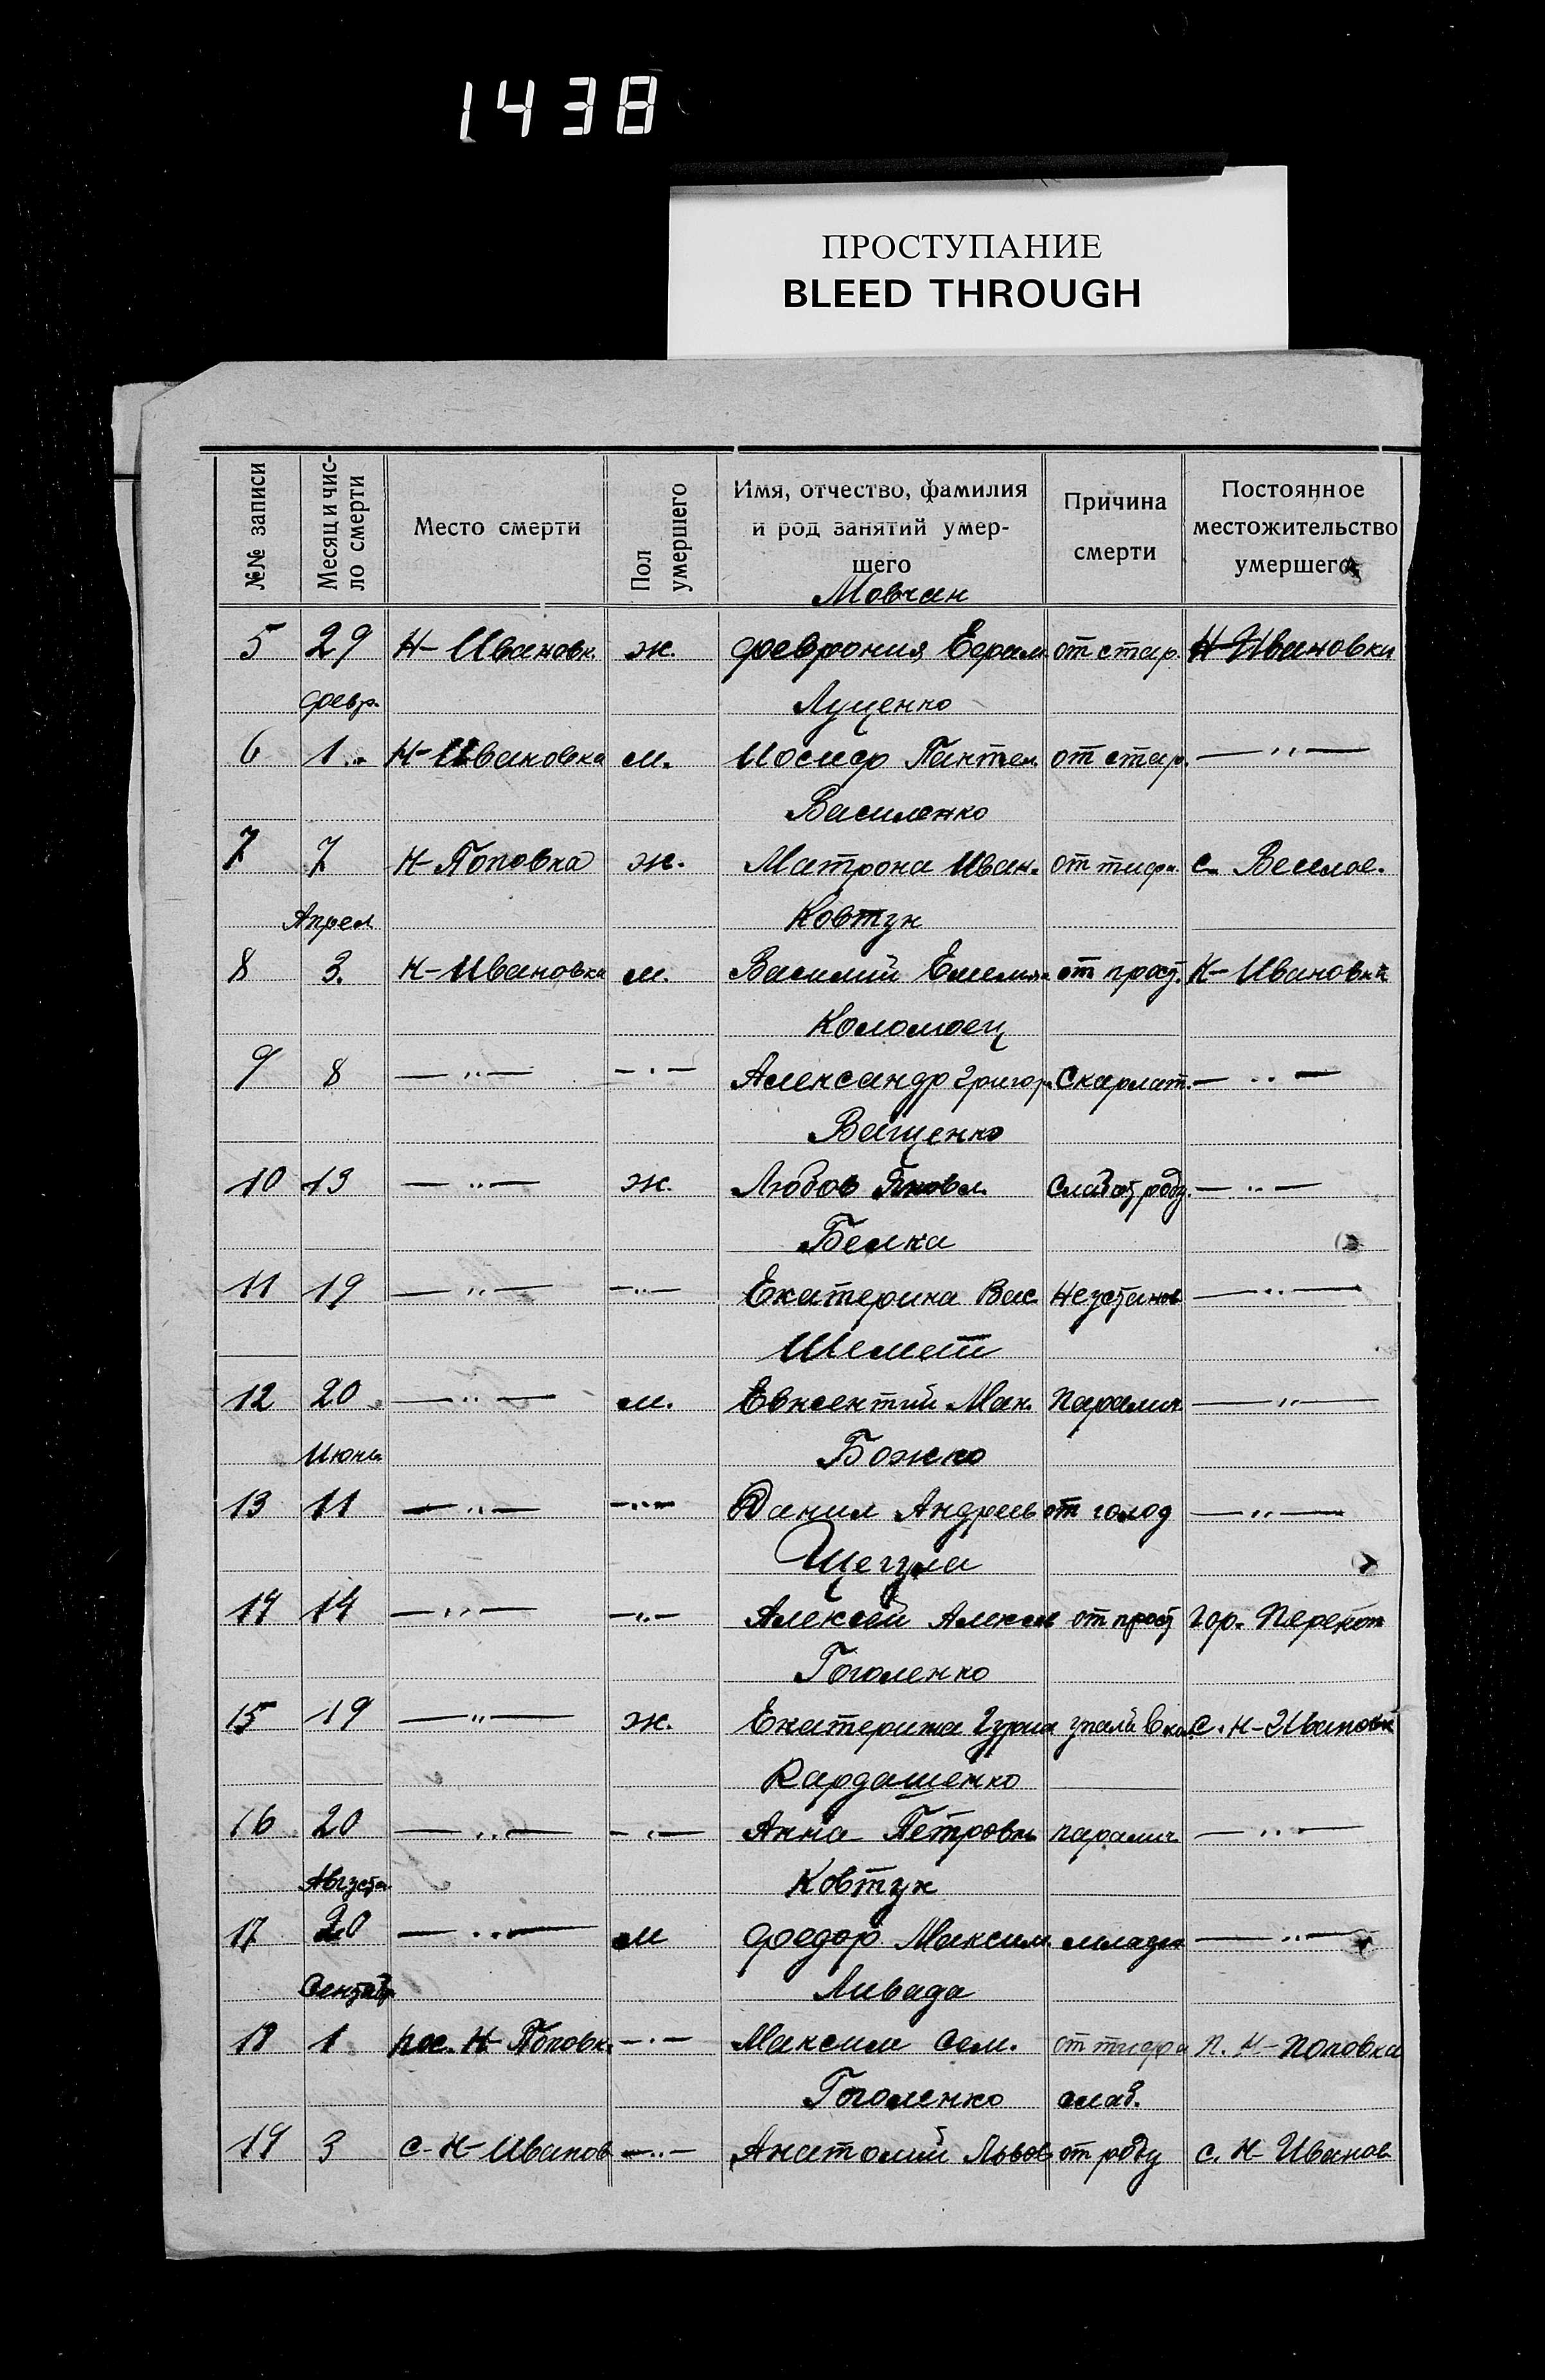 1438
ПРОСТУПАНИЕ
BLEED THROUGH
№№ записи
Месяц и чис-
ло смерти
Место смерти
Пол
умершего
Имя, отчество, фамилия
и род занятий умер-
шего
Причина
смерти
Постоянное
местожительство
умершего
Мовчан
5 29 Н-Ивановк. ж. Феврония Ефрам. от стар. Н-Ивановки
февр. Луценко
6 1 Н-Ивановка м. Иосиф Пантел. от стар. — " —
Василенко
7 7 Н-Поповка ж. Матрона Иван. от тифа. с. Веселое.
Апрел Ковтун
8 3. Н-Ивановка м. Василий Емельян от прост. Н-Ивановка
Коломоец
9 8 — " — — " — Александр Григор. Скарлат. — " —
Ващенко
10 13 — " — ж. Любов Яковл. — " —
Белка
11 19 — " — — " — Екатерина Вас. Неустанов — " —
Шемет
12 20 — " — м. Евксентий Мак. паралич — " —
Июня Божко
13 11 — " — — " — Данил Андреев от голод — " —
Щегула
14 14 — " — — " — Алексей Алексеев от прост Гор. Перекоп
Гоголенко
15 19 — " — ж. Екатерина с. Н-Ивановк
Кардашенко
16 20 — " — — " — Анна Петровн. паралич — " —
Августа Ковтун
17 20 — " — м Федор Максим. — " —
Сентябр Ливада
18 1 пос. Н-Поповк. — " — Максим Сем. от тифа п. Н-Поповка
Гоголенко слаб.
19 3 с-Н-Иванов — " — Анатолий Львов. от роду с. Н-Иванов